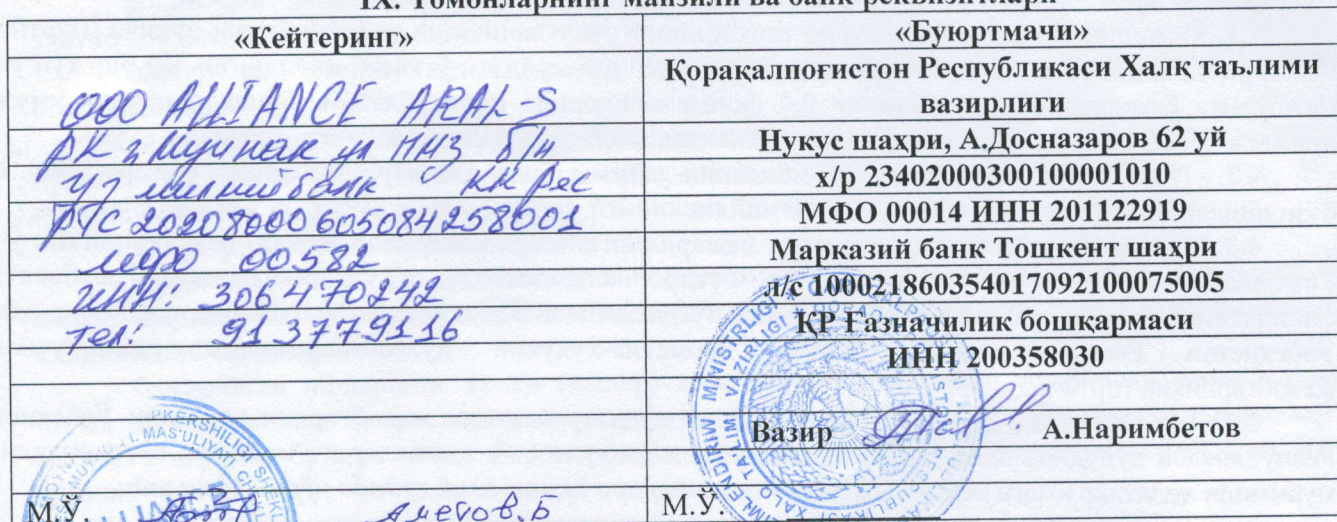 IX. Томонларнинг манзили ва банк реквизитлари
«Кейтеринг»
ООО ALLIANCE ARAL S
РК г Муйнак ул ММЗ б/н
Уз миллий банк КК Рес
Р/С 20208000605084258001
мфо 00582
ИНН: 306470242
тел: 913779116
М.Ў.
Аметов.Б
«Буюртмачи»
Қорақалпоғистон Республикаси Халқ таълими
вазирлиги
Нукус шаҳри, А.Досназаров 62 уй
х/р 23402000300100001010
МФО 00014 ИНН 201122919
Марказий банк Тошкент шаҳри
л/с 100021860354017092100075005
ҚР Ғазначилик бошқармаси
ИНН 200358030
Вазир А.Наримбетов
М.Ў.